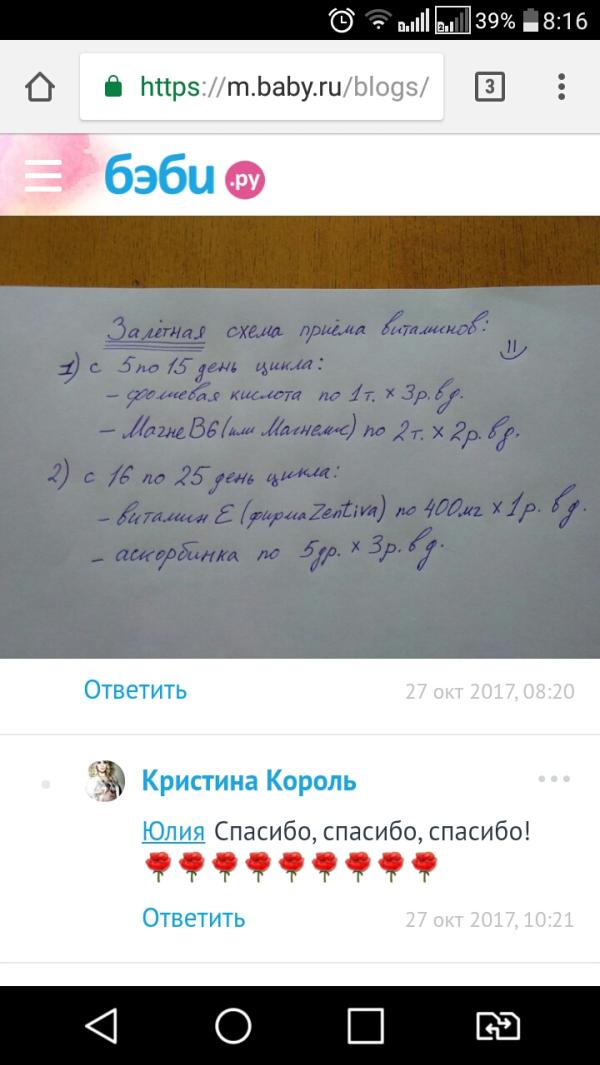 39% 8:16
https://m.baby.ru/blogs/
3
бэби .ру
Залётная схема приёма витаминов:
1) с 5 по 15 день цикла:
- фолиевая кислота по 1т. × 3р. в д.
- МагнеВ6 (или Магнелис) по 2т. × 2р. в д.
2) с 16 по 25 день цикла:
- витамин Е (фирма Zentiva) по 400мг × 1р. в д.
- аскорбинка по 5др. × 3р. в д.
Ответить 27 окт 2017, 08:20
Кристина Король
Юлия Спасибо, спасибо, спасибо!
🌹🌹🌹🌹🌹🌹🌹🌹🌹
Ответить 27 окт 2017, 10:21